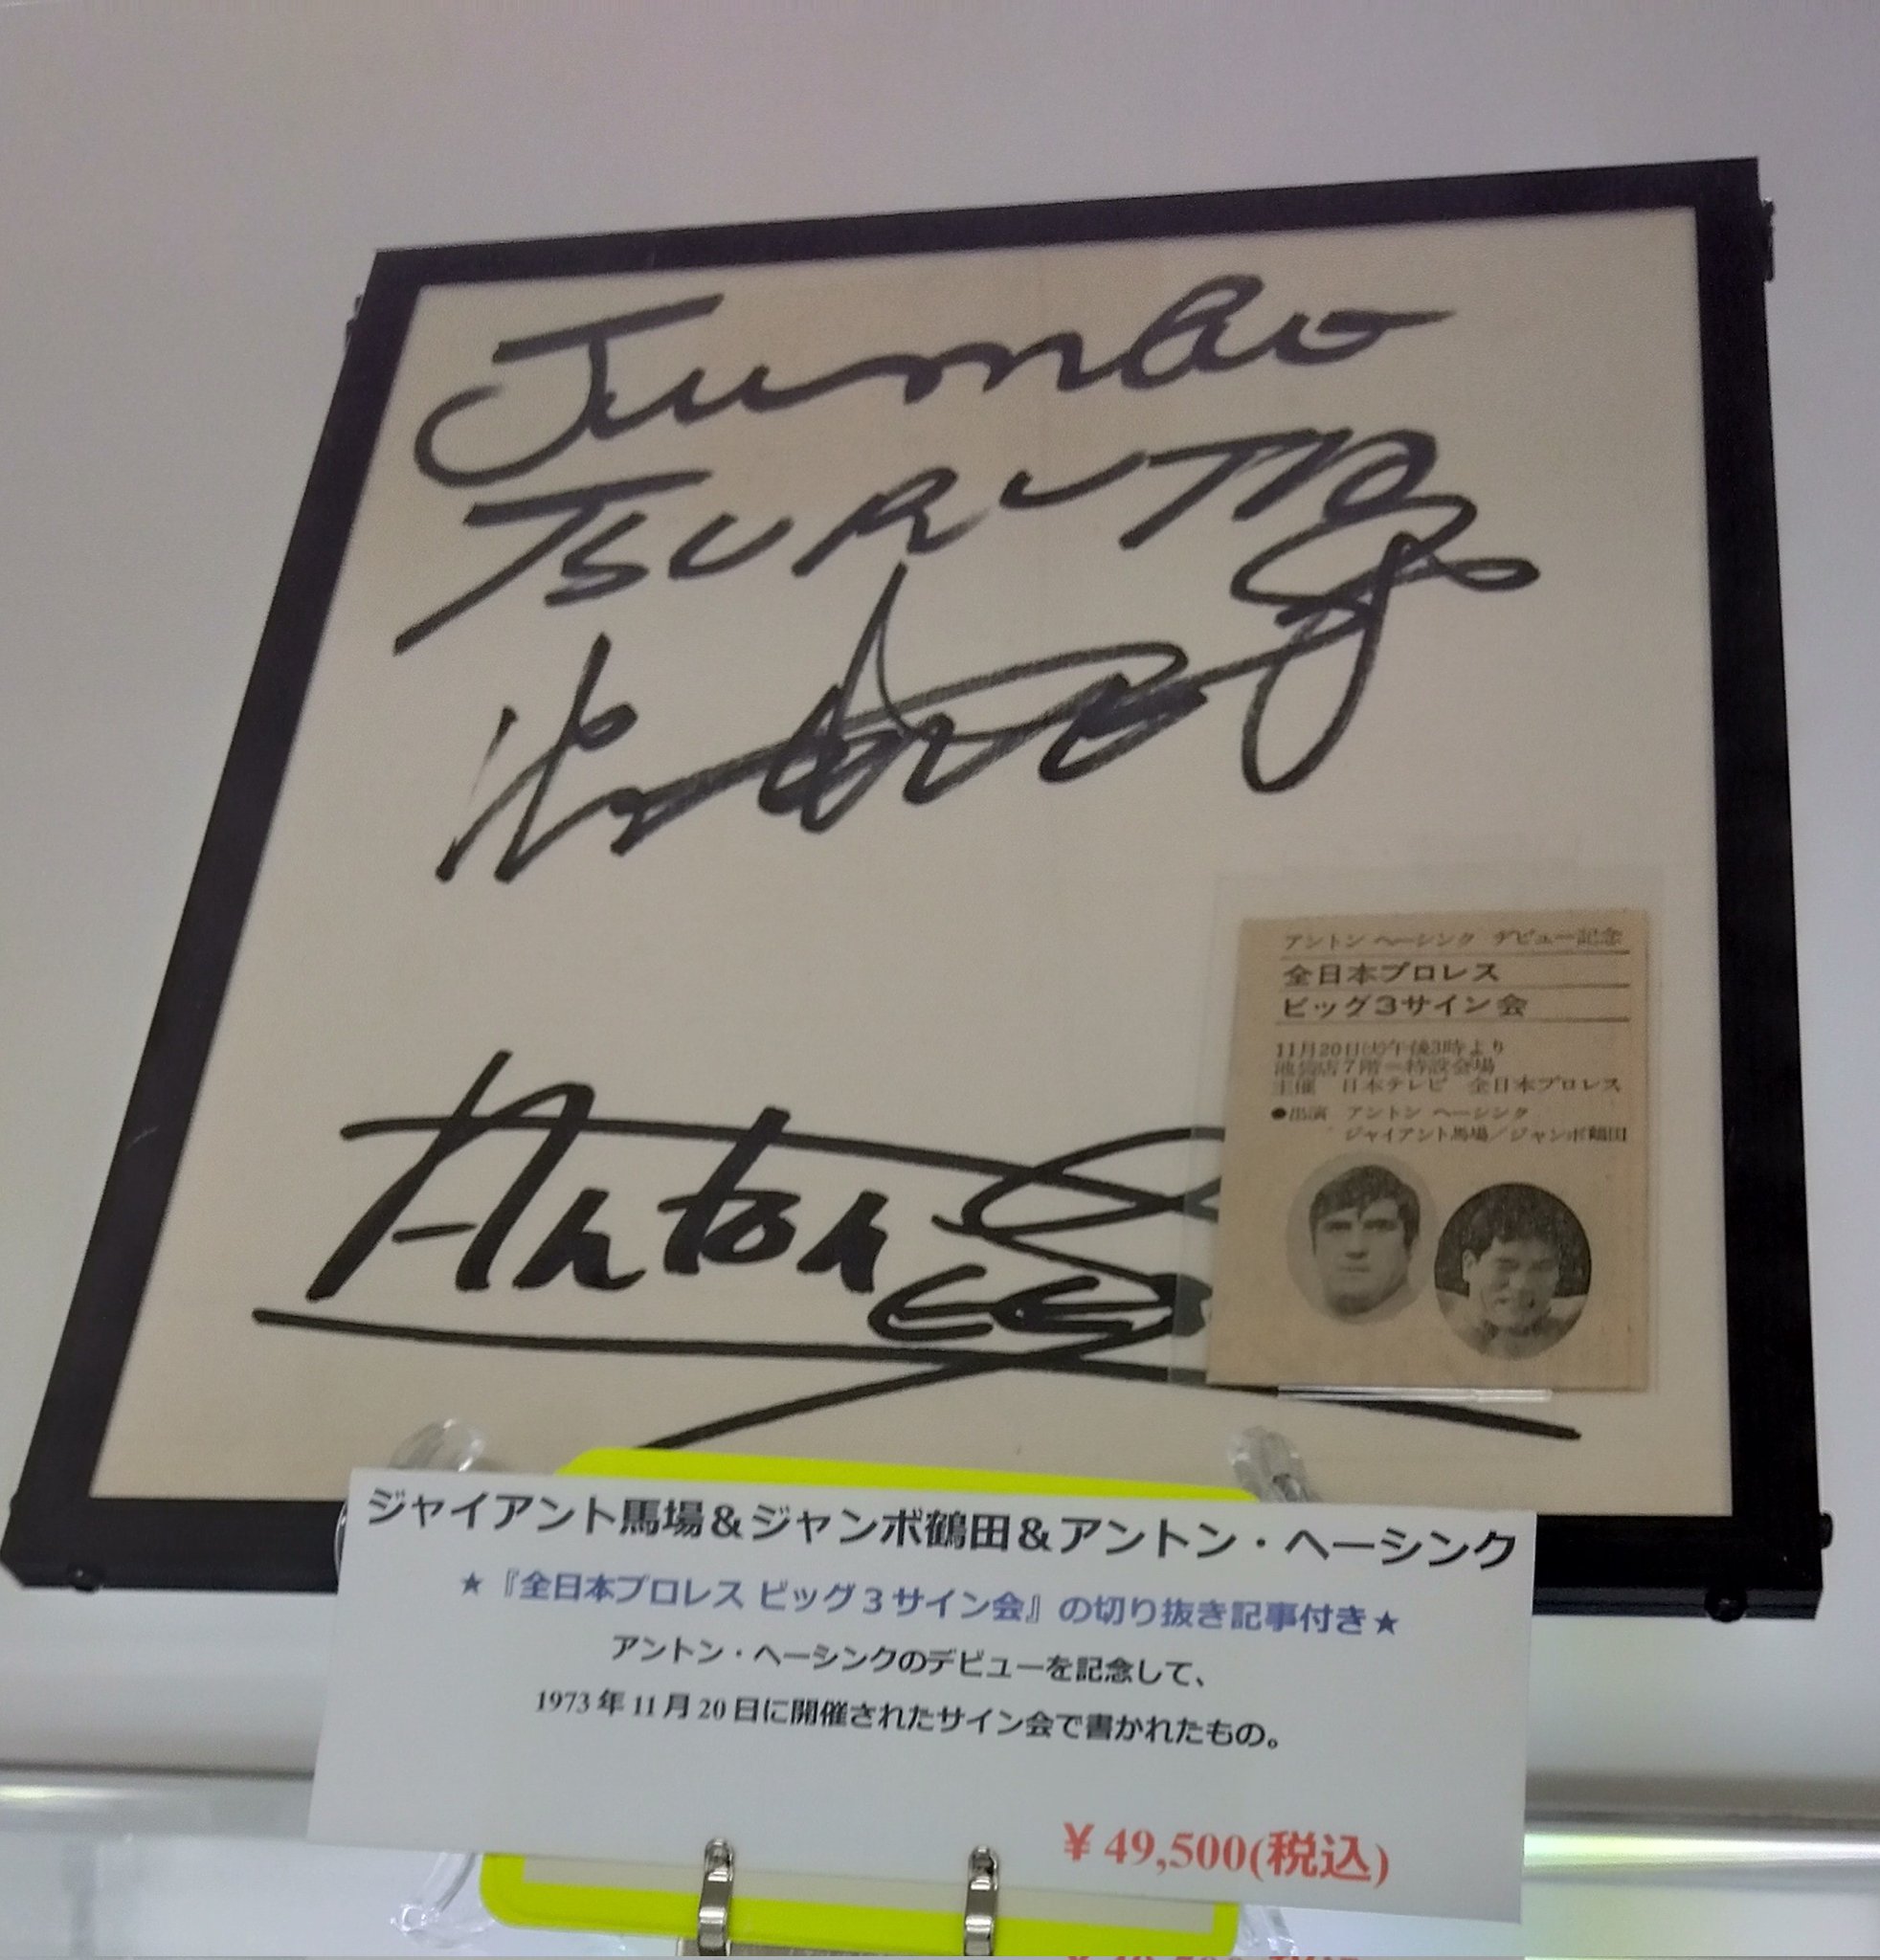 Jumbo
TSURUTA
Anton
アントン ヘーシンク デビュー記念
全日本プロレス
ビッグ3サイン会
11月20日(火)午後3時より
池袋店7階=特設会場
主催 日本テレビ 全日本プロレス
●出演 アントン ヘーシンク
ジャイアント馬場/ジャンボ鶴田
ジャイアント馬場&ジャンボ鶴田&アントン・ヘーシンク
★『全日本プロレス ビッグ3サイン会』の切り抜き記事付き★
アントン・ヘーシンクのデビューを記念して、
1973年11月20日に開催されたサイン会で書かれたもの。
¥49,500(税込)